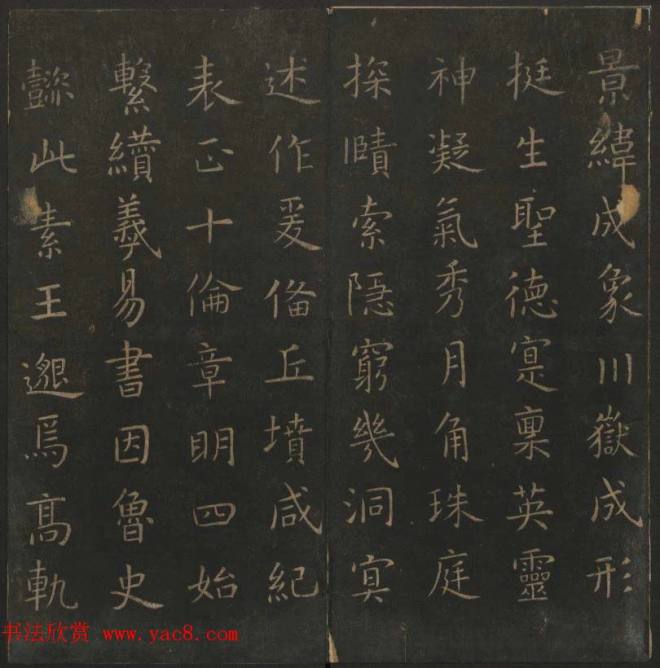 景緯成象川嶽成形
挺生聖德寔稟英靈
神凝氣秀月角珠庭
探賾索隱窮幾洞冥
述作爰俻丘墳咸紀
表正十倫章明四始
繫纘羲易書因魯史
懿此素王邈焉高軌
书法欣赏 www.yac8.com